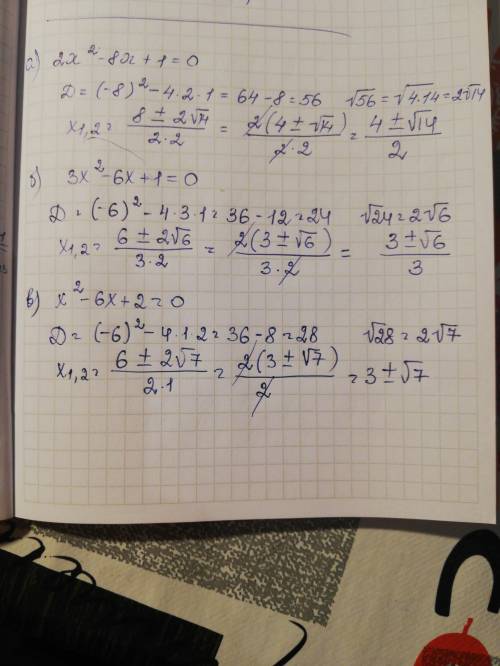 а) 2x² - 8x + 1 = 0
D = (-8)² - 4·2·1 = 64 - 8 = 56 √56 = √4·14 = 2√14
x₁,₂ = (8 ± 2√14)/(2·2) = (2(4 ± √14))/(2·2) = (4 ± √14)/2
б) 3x² - 6x + 1 = 0
D = (-6)² - 4·3·1 = 36 - 12 = 24 √24 = 2√6
x₁,₂ = (6 ± 2√6)/(3·2) = (2(3 ± √6))/(3·2) = (3 ± √6)/3
в) x² - 6x + 2 = 0
D = (-6)² - 4·1·2 = 36 - 8 = 28 √28 = 2√7
x₁,₂ = (6 ± 2√7)/(2·1) = (2(3 ± √7))/2 = 3 ± √7